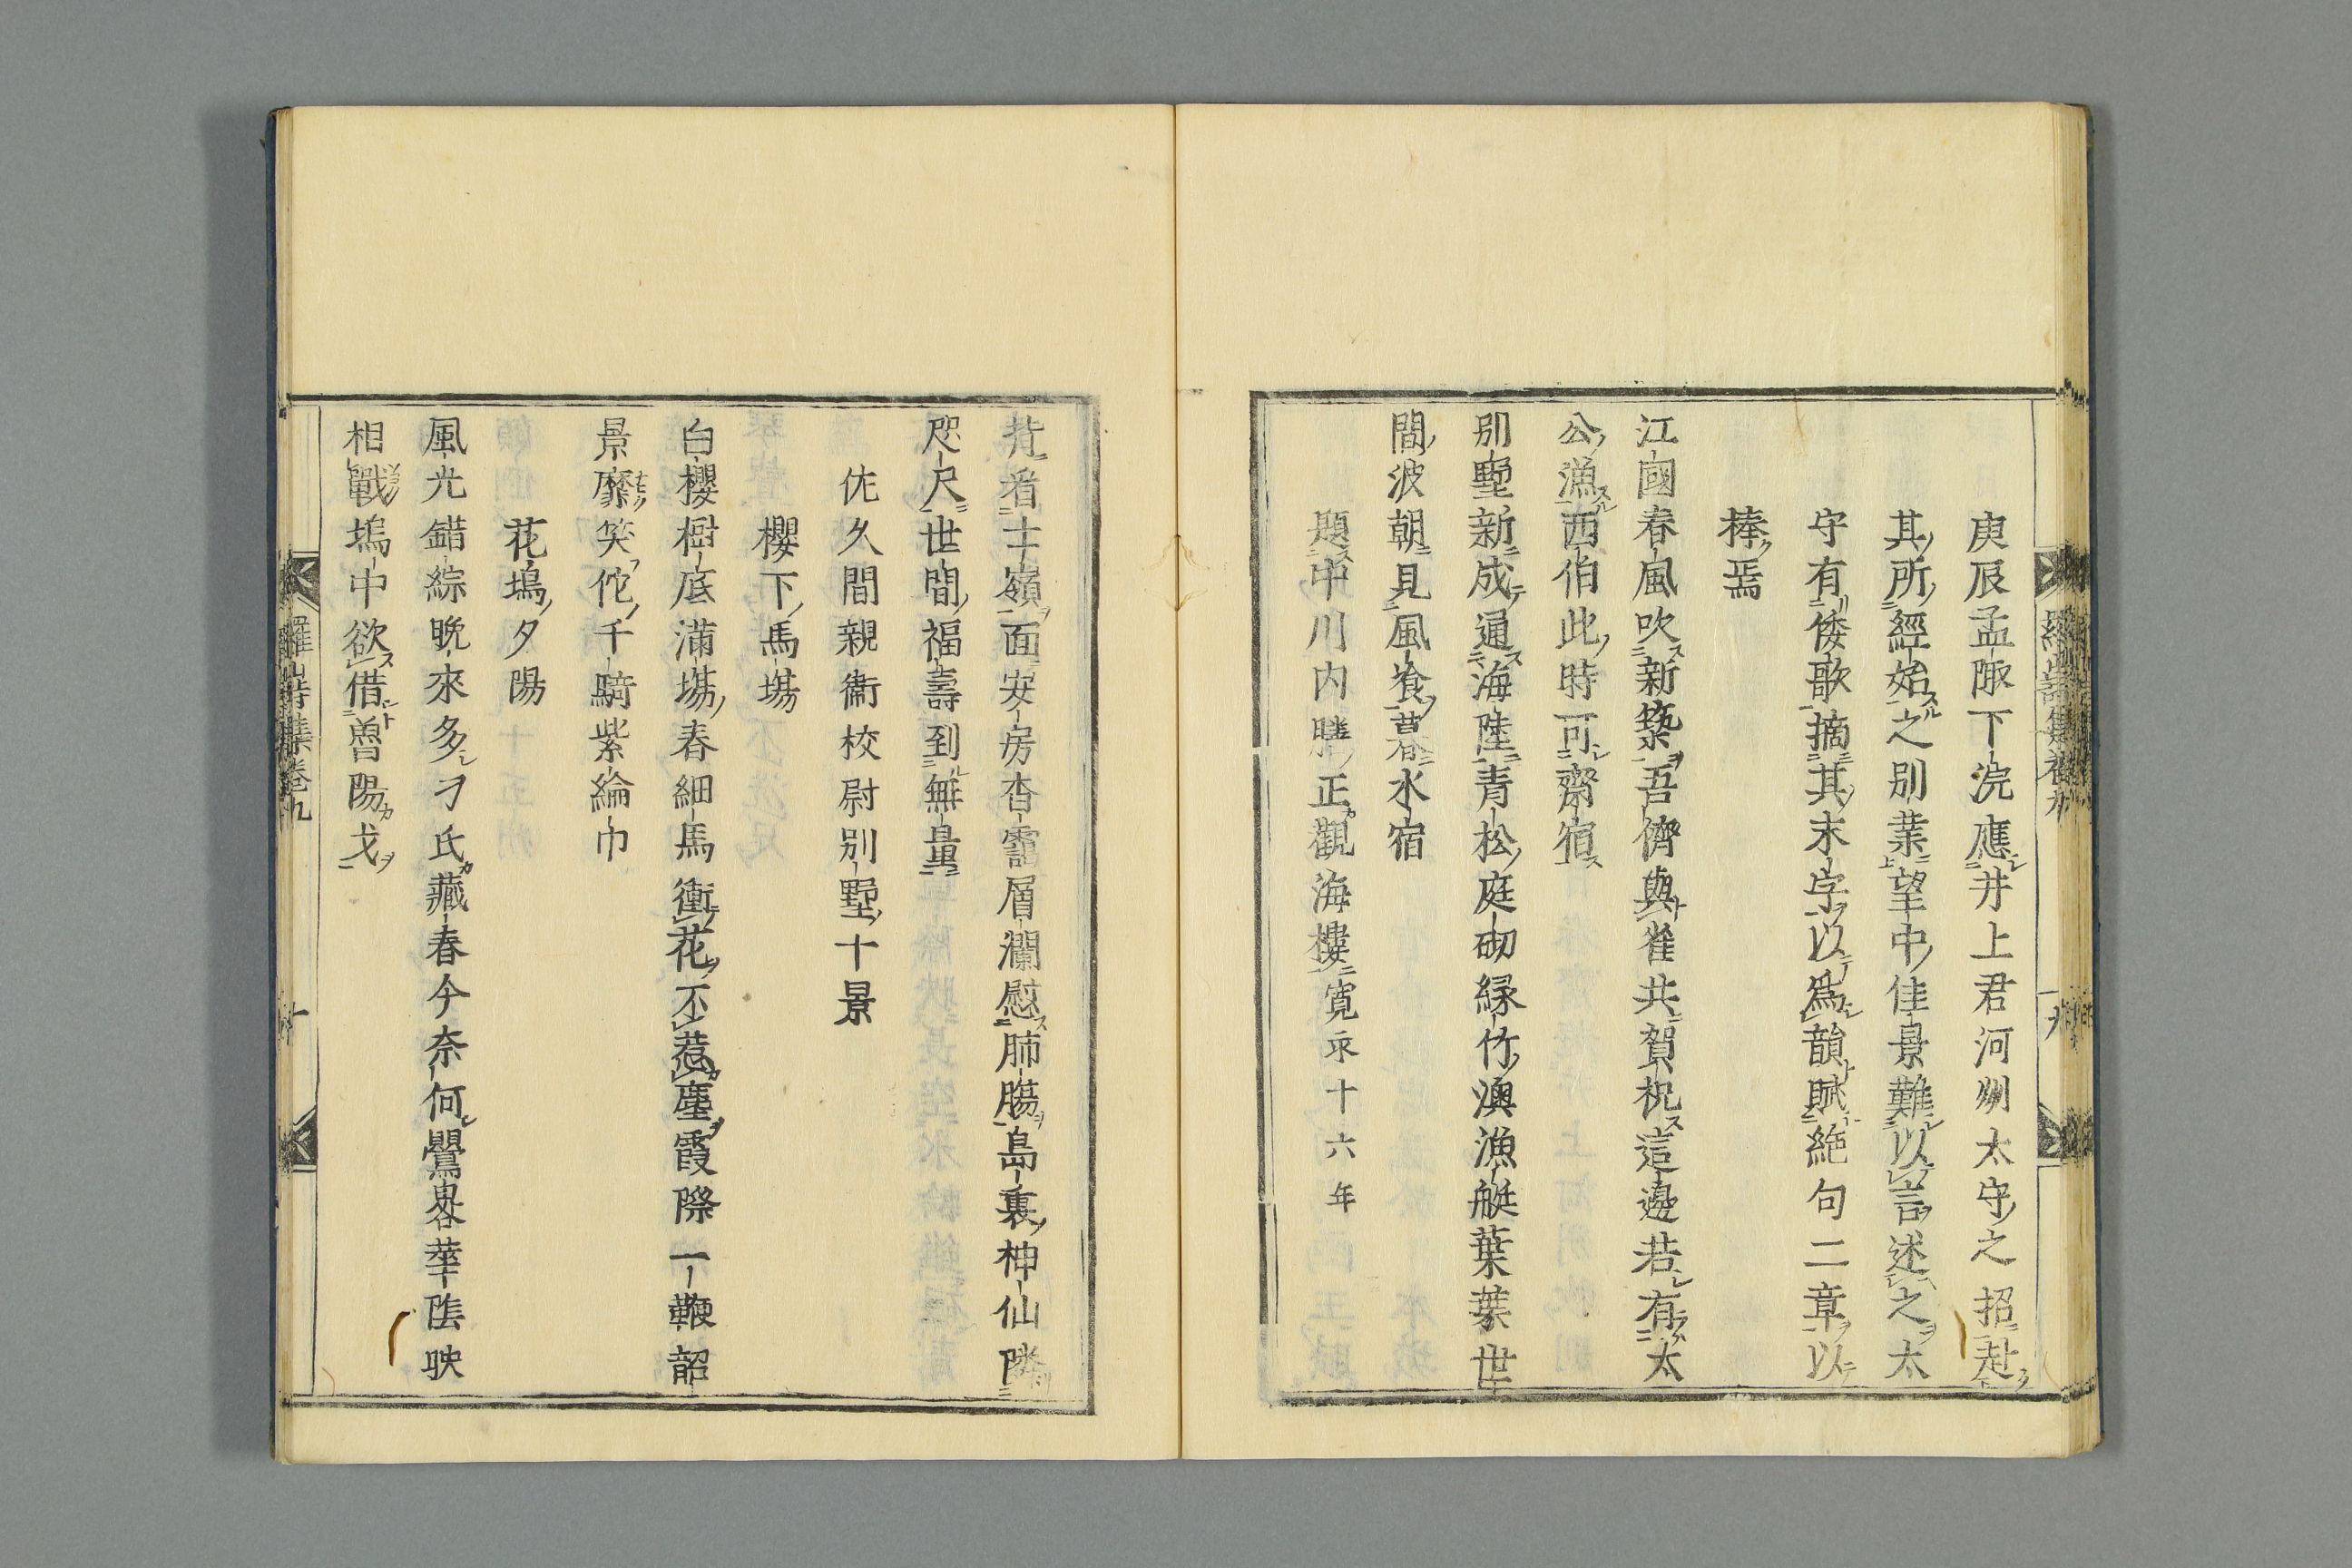 庚辰孟陬下浣應井上君河州太守之招赴
其所經始之別業望中佳景難以言述之太
守有倭歌摘其末字以爲韻賦絶句二章以
捧焉
江國春風吹新築吾儕與雀共賀祝這邊若有太
公漁西伯此時可齋宿
別墅新成通海陸青松庭砌緑竹澳漁艇葉葉世
間波朝見風飡暮水宿
題中川内膳正觀海樓寛永十六年
背看士嶺面安房杳靄層瀾慰肺腸島裏神仙隣
咫尺世間福壽到無量
佐久間親衞校尉別墅十景
櫻下馬場
白櫻樹底滿場春細馬衝花不惹塵霞際一鞭韶
景靡笑佗千騎紫綸巾
花塢夕陽
風光錯綜晩來多刁氏藏春今奈何鸎晷華陰映
相戰塢中欲借魯陽戈
羅山詩集卷九
十
羅山詩集卷九
九